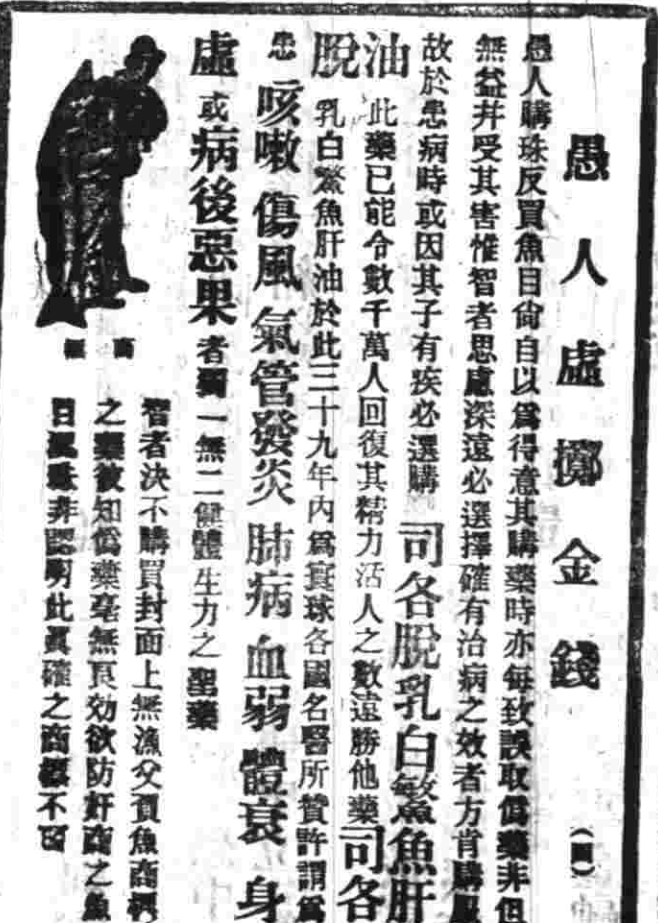 愚人虛擲金錢
愚人購珠反買魚目尙自以爲得意其購藥時亦每致誤取僞藥非但
無益幷受其害惟智者思慮深遠必選擇確有治病之效者方肯購服
故於患病時或因其子有疾必選購司各脫乳白鰵魚肝
油此藥已能令數千萬人回復其精力活人之數遠勝他藥司各
脫乳白鰵魚肝油於此三十九年內爲寰球各國名醫所贊許謂爲
患咳嗽傷風氣管發炎肺病血弱體衰身
虛或病後惡果者獨一無二健體生力之聖藥
商標
智者決不購買封面上無漁父負魚商標
之藥彼知僞藥毫無良効欲防奸商之魚
目混珠非認明此眞確之商標不可